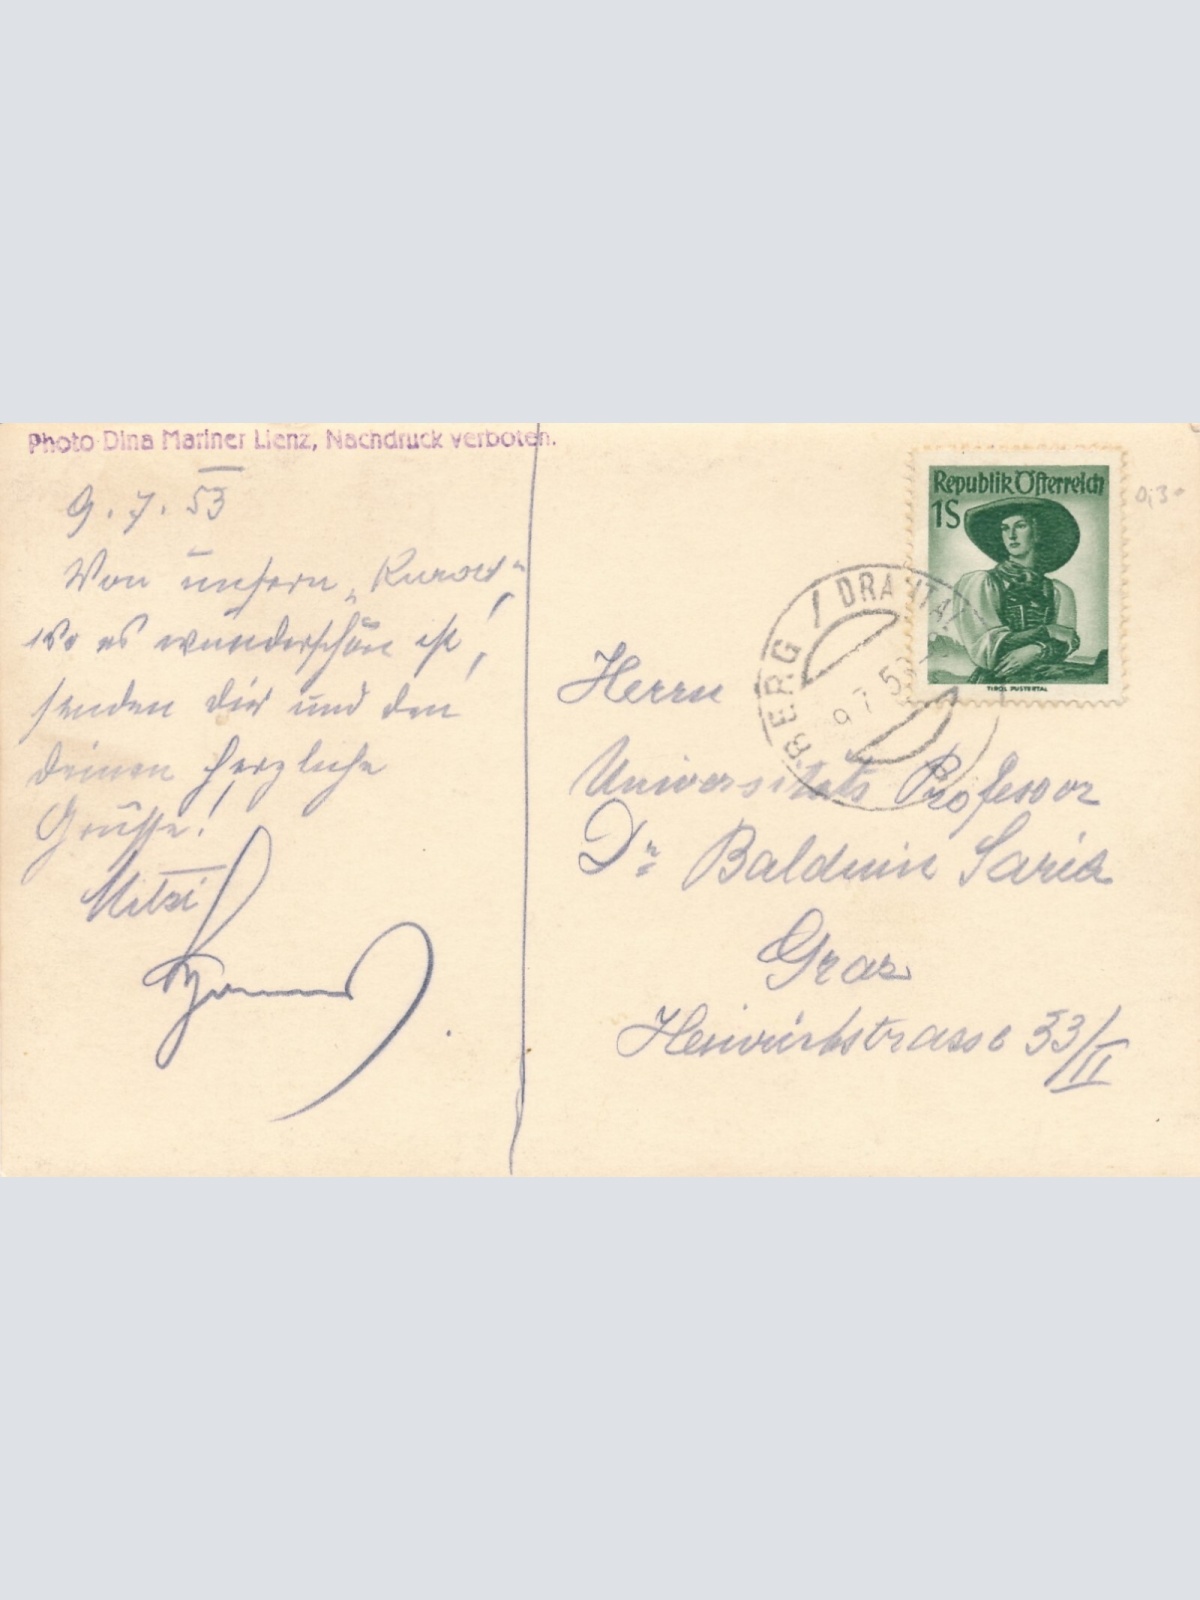 Photo Dina Mariner Lienz, Nachdruck verboten.
9. 7. 53
Von unsern „Kurort“
wo es wunderschön ist,
senden dir und den
deinen herzliche
Grüsse!
Mitzi
Republik Österreich
1S
TIROL PUSTERTAL
0,30
BERG / DRAUTAL
9 7 5
Herrn
Universitäts Professor
Dr Balduin Saria
Graz
33/II